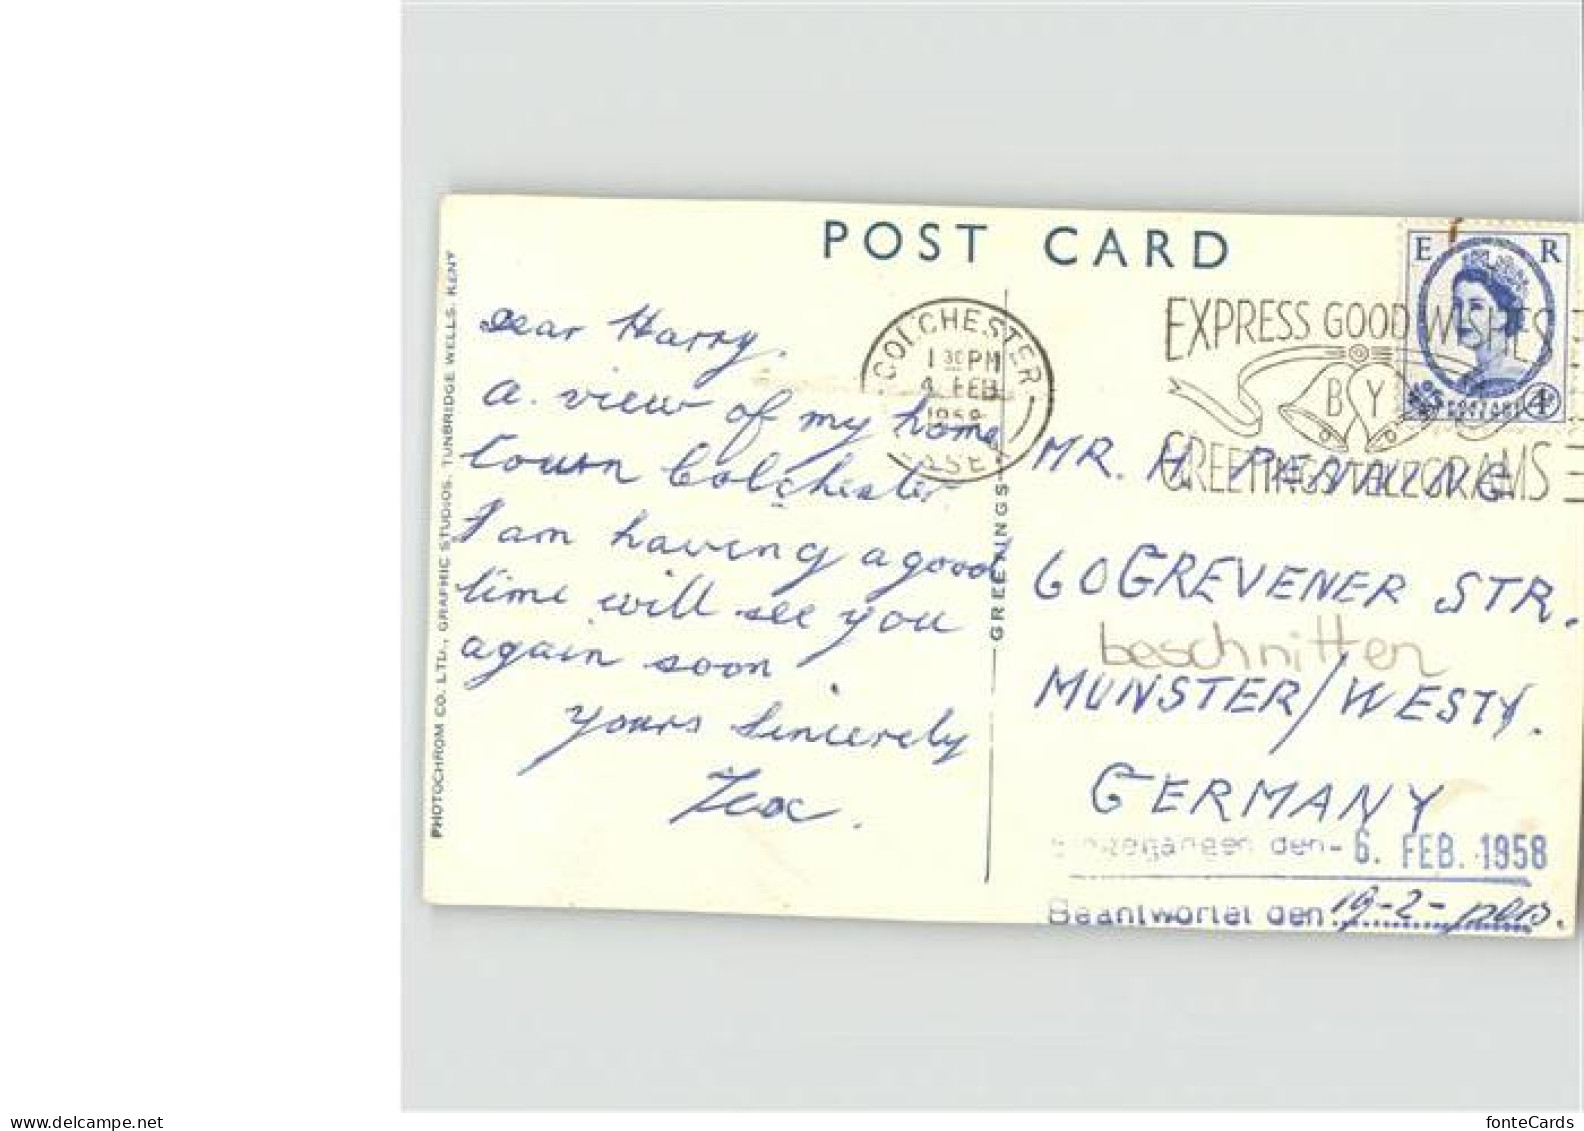 POST CARD
PHOTOCHROM CO. LTD., GRAPHIC STUDIOS, TUNBRIDGE WELLS, KENT
Dear Harry.
a. view of my home
town Colchester
I am having a good
time will see you
again soon.
yours Sincerely
GREETINGS
COLCHESTER
1 30 PM
4 FEB
1958
E R
EXPRESS GOOD WISHES
BY
GREETINGS TELEGRAMS
MR. H.
60 GREVENER STR.
beschnitten
MUNSTER/WESTF.
GERMANY
Eingegangen den - 6. FEB. 1958
Beantwortet den 19-2-
delcampe.net
my_love_for_old_cards
fonteCards